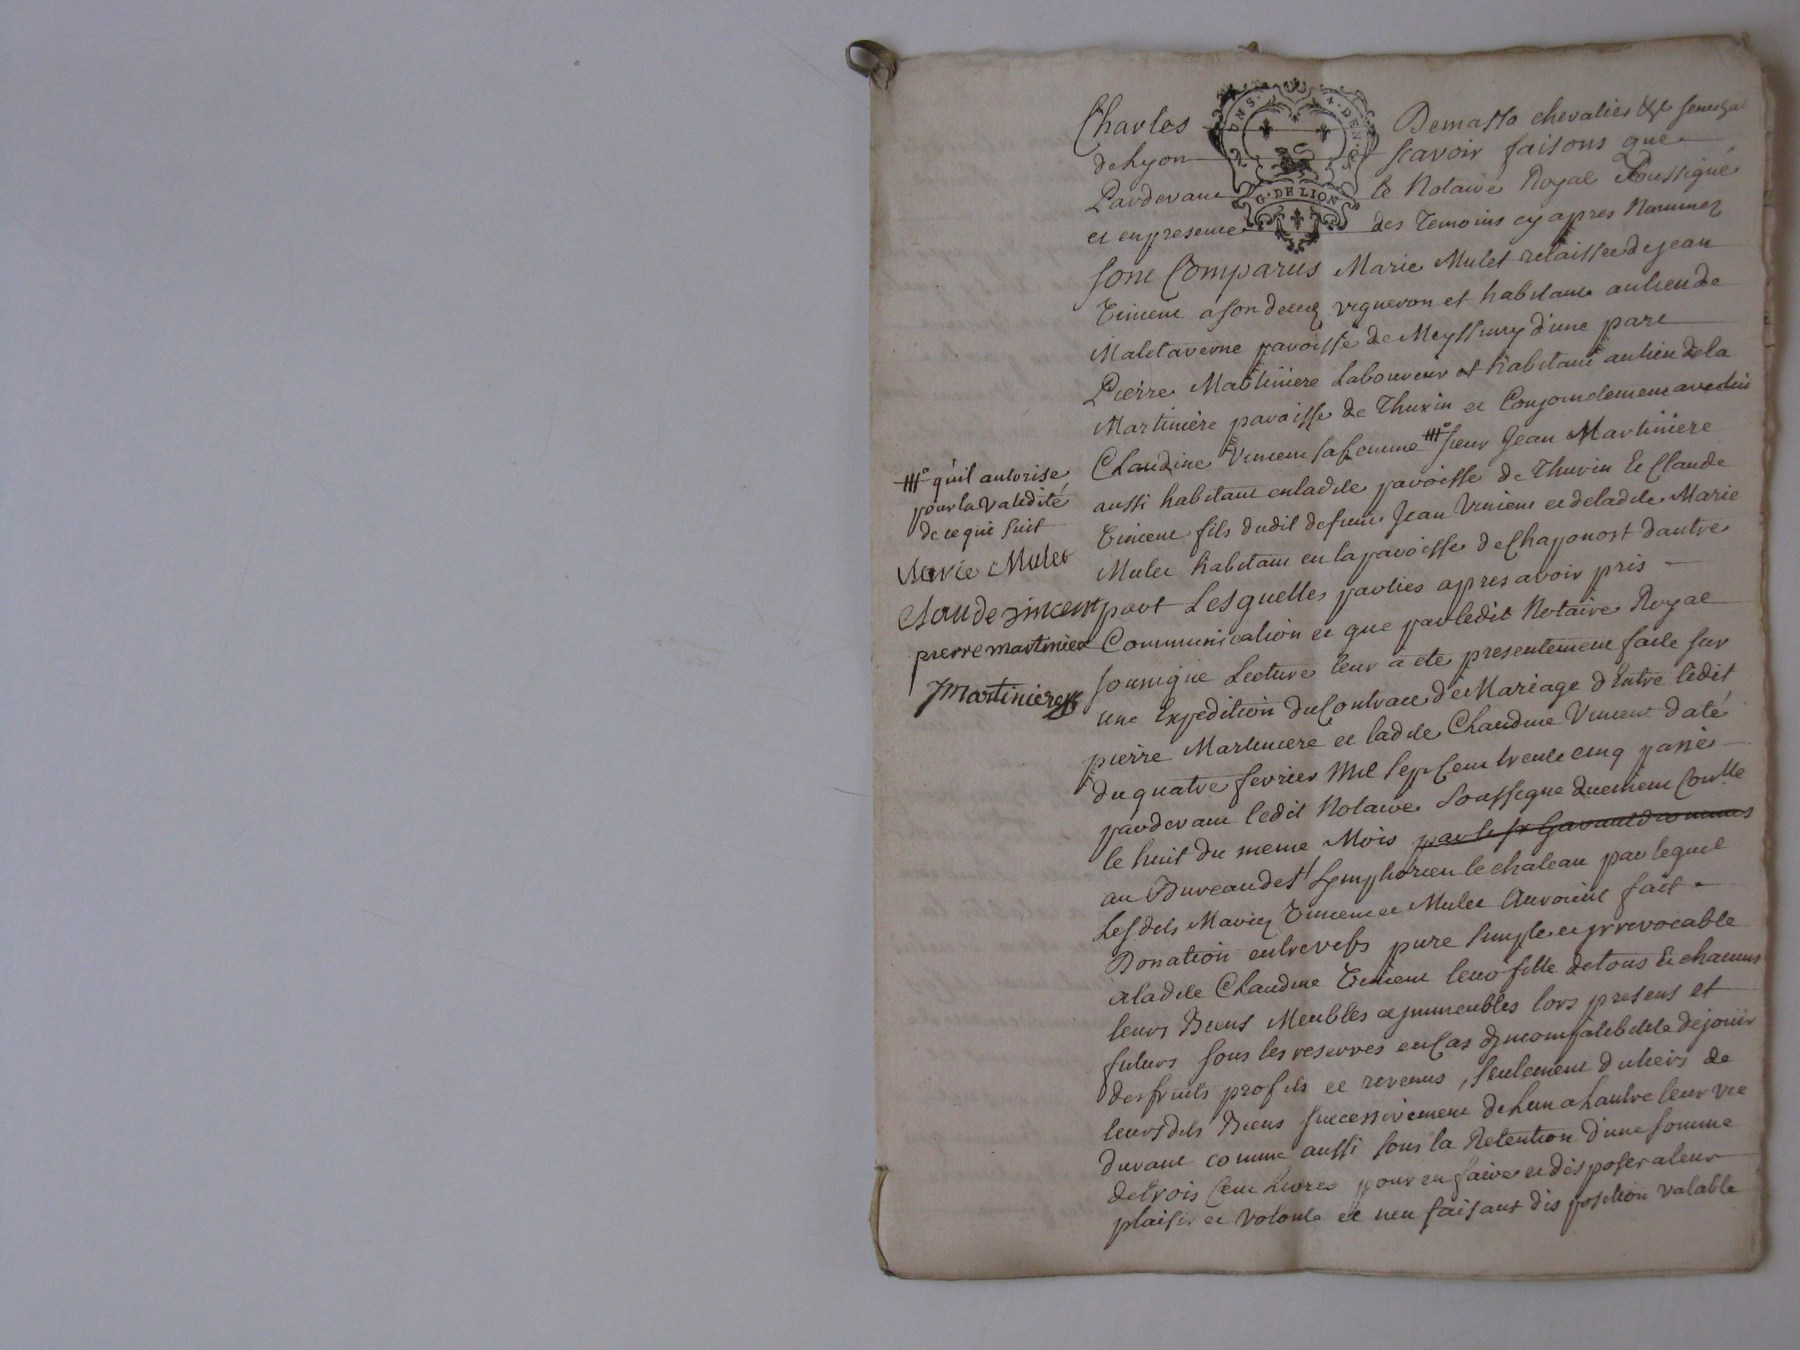 DNS. DEN.
G. DE LION
Charles Demasso chevalier &c seneschal
de Lyon scavoir faisons que
Pardevant le Notaire Royal soussigné
et en presence des Temoins cy apres Nommez
sont Comparus Marie Mulet relaissée de jean
Vincent a son deces vigneron et habitante au lieu de
Maletaverne paroisse de Meyssimy d'une part
Pierre Martiniere Laboureur et habitant au lieu de la
Martiniere paroisse de Thurin et Conjointement avec luy
Claudine Vincent sa femme # sieur Jean Martiniere
aussi habitant en ladite paroisse de Thurin & Claude
Vincent fils dudit defunt Jean Vincent et de ladite Marie
Mulet habitant en la paroisse de Chaponost d'autre
part Lesquelles parties apres avoir pris
Communication et que par ledit Notaire Royal
soussigné Lecture leur a été presentement faite sur
une Expedition du Contract de Mariage d'Entre ledit
pierre Martiniere et ladite Claudine Vincent daté
du quatre fevrier Mil sept Cent trente cinq passé
pardevant ledit Notaire soussigné duement Conllé
le huit du meme Mois par le sr
au Bureau de St Symphorien le chateau par lequel
Lesdits Mariez Vincent et Mulet Auroient fait
Donation entrevifs pure simple et irrevocable
a ladite Claudine Vincent leur fille de tous & chacuns
leurs Biens Meubles et immeubles lors presens et
futurs sous les reserves en Cas d'incompatibilité de jouir
des fruits profits et revenus, seulement du tiers de
leursdits Biens successivement de L'un a L'autre leur vie
durant comme aussi sous la Retention d'une somme
de trois Cent Livres pour en faire et disposer a leur
plaisir et volonté et n'en faisant disposition valable
# qu'il autorise
pour la validité
de ce qui suit
Marie Mulet
claude vincent
pierre martiniere
J Martiniere